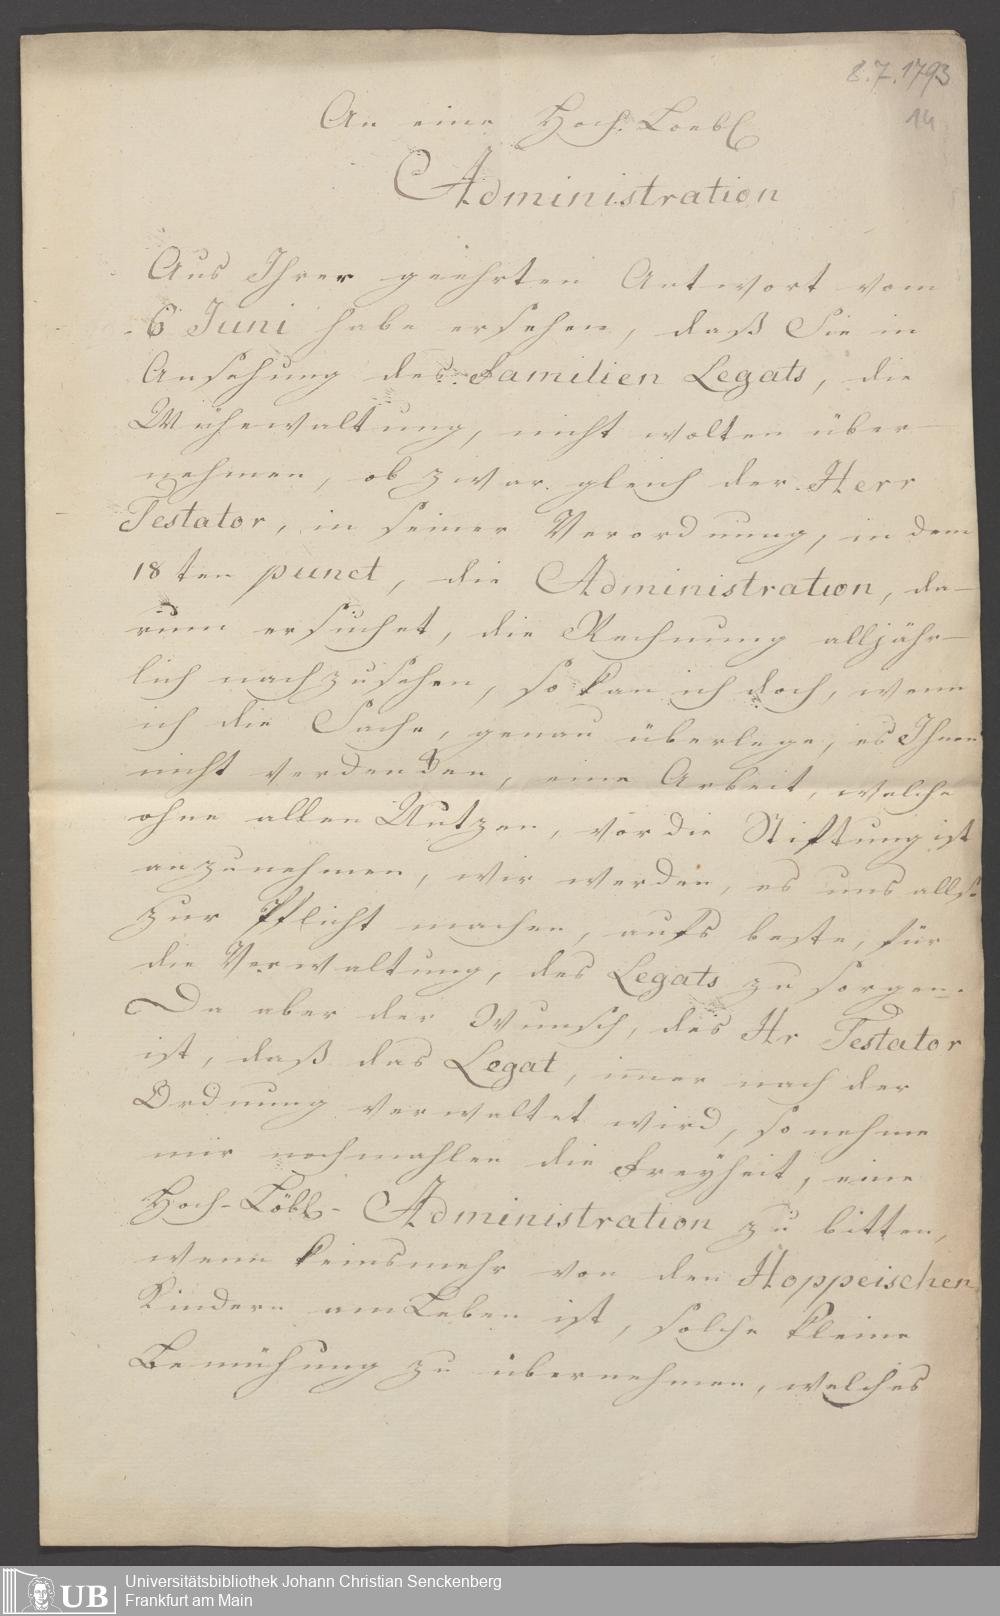 8.7.1793
14
An eine Hoch: Loebl
Administration
Aus Ihrer geehrten Antwort vom
6 Juni habe ersehen, daß Sie in
Ansehung des Familien Legats, die
Mühewaltung, nicht wolten über-
nehmen, ob zwar gleich der Herr
Testator, in seiner Verordnung, in dem
18ten punct, die Administration, da-
rum ersuchet, die Rechnung alljähr-
lich nachzusehen, so kan ich doch, wenn
ich die Sache, genau überlege, es Ihnen
nicht verdenden, eine Arbeit, welche
ohne allen Nutzen, vor die Stiftung ist
anzunehmen, wir werden, es uns allso
zur Pflicht machen, aufs beste, für
die Verwaltung, des Legats zu sorgen.
Da aber der Wunsch, des Hr Testator
ist, daß das Legat, imer nach der
Ordnung verwaltet wird, so nehme
mir nochmahlen die Freyheit, eine
Hoch-Löbl- Administration zu bitten,
wenn keinsmehr von den Hoppeischen
Kindern am Leben ist, solche kleine
Bemühung zu übernehmen, welches
UB
Universitätsbibliothek Johann Christian Senckenberg
Frankfurt am Main